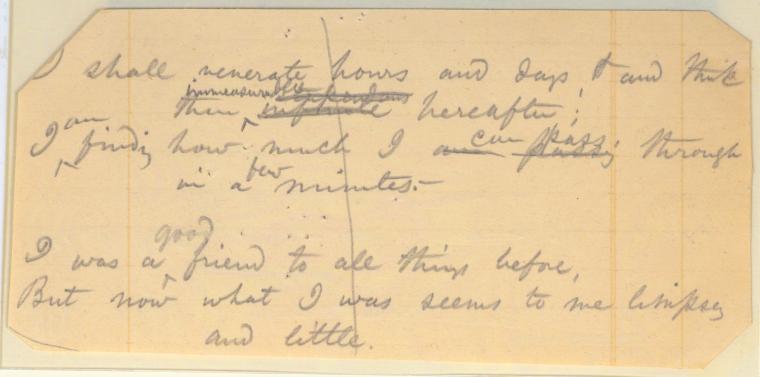 I shall venerate hours and days and think
them immeasurable hereafter;
I am finding how much I am can passing pass through
in a few minutes.—
I was a good friend to all things before,
But now what I was seems to me limpsey
and little.